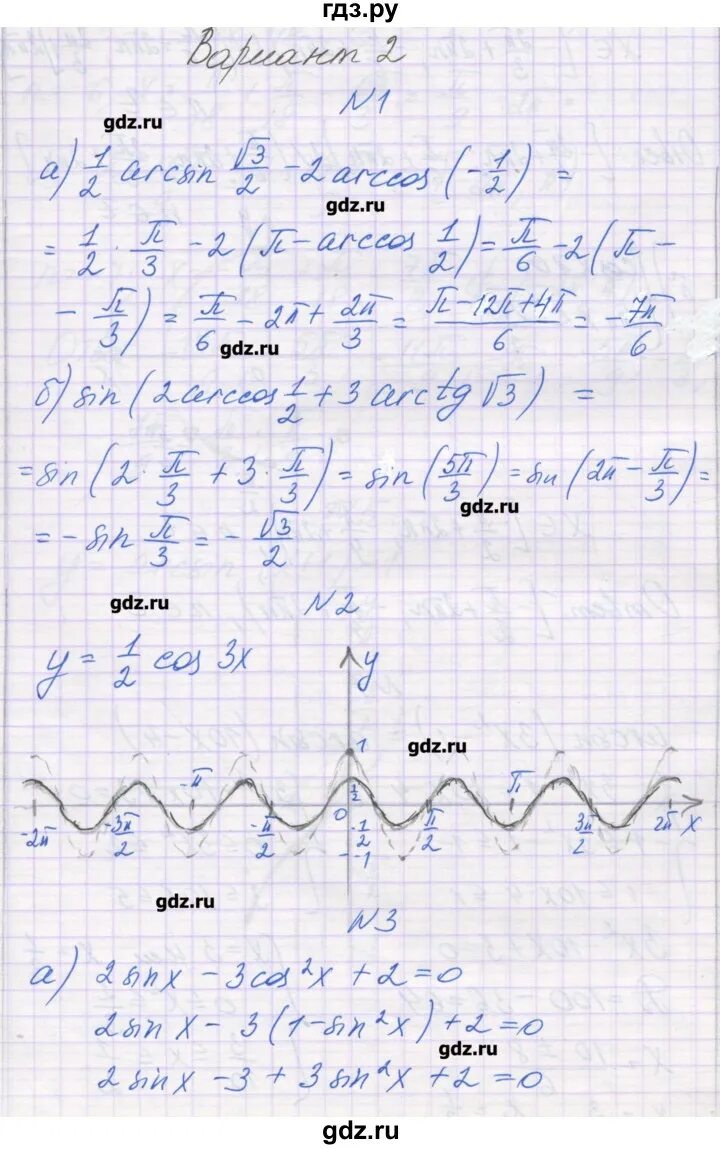 гдз.ру
Вариант 2
N1
gdz.ru
а) 1/2 arcsin √3/2 - 2 arccos (-1/2) =
gdz.ru
= 1/2 · π/3 - 2 (π - arccos 1/2) = π/6 - 2 (π -
- π/3) = π/6 - 2π + 2π/3 = (π - 12π + 4π)/6 = - 7π/6
gdz.ru
б) sin (2 arccos 1/2 + 3 arctg √3) =
= sin (2 · π/3 + 3 · π/3) = sin (5π/3) = sin (2π - π/3) =
gdz.ru
= - sin π/3 = - √3/2
gdz.ru
N2
y = 1/2 cos 3x
y
1
gdz.ru
-π
1/2
π
0
-2π
-3π/2
-π/2
-1/2
π/2
3π/2
2π
x
-1
gdz.ru
N3
а) 2 sin x - 3 cos²x + 2 = 0
2 sin x - 3 (1 - sin²x) + 2 = 0
gdz.ru
2 sin x - 3 + 3 sin²x + 2 = 0
gdz.ru